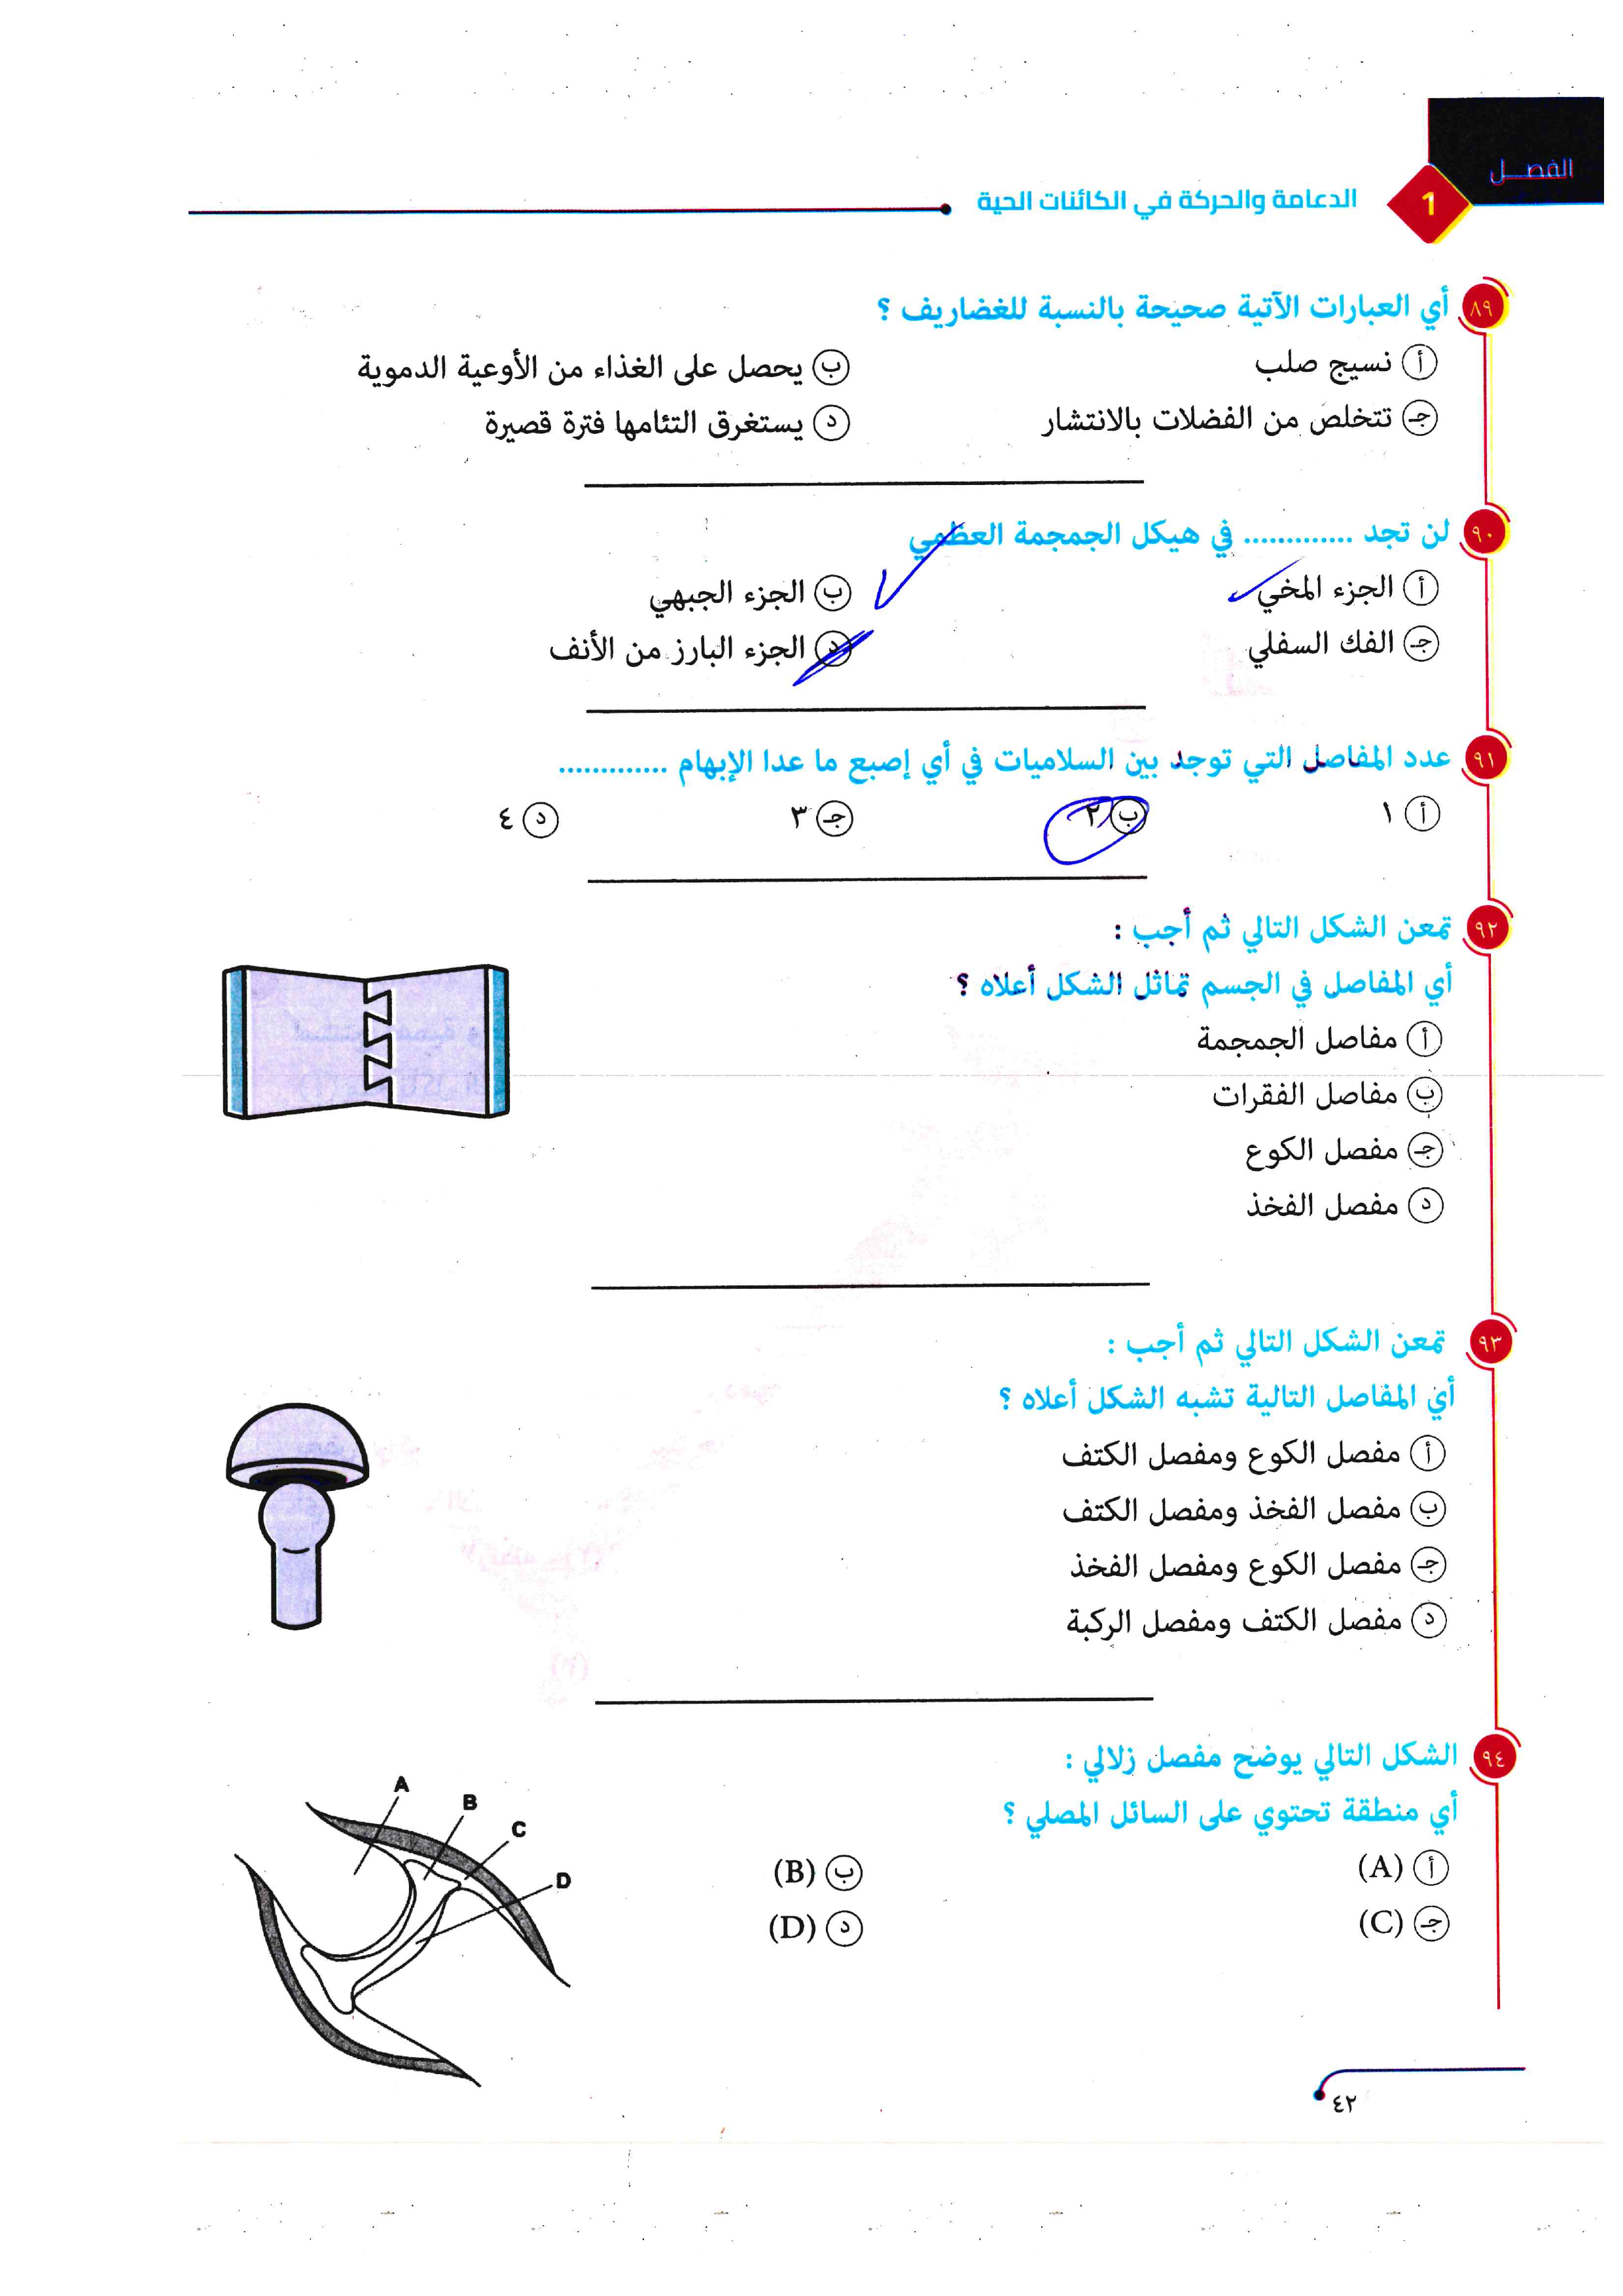 الفصل
1
الدعامة والحركة في الكائنات الحية
٨٩ أي العبارات الآتية صحيحة بالنسبة للغضاريف ؟
أ نسيج صلب
ب يحصل على الغذاء من الأوعية الدموية
جـ تتخلص من الفضلات بالانتشار
د يستغرق التئامها فترة قصيرة
٩٠ لن تجد ............. في هيكل الجمجمة العظمي
أ الجزء المخي
ب الجزء الجبهي
جـ الفك السفلي
د الجزء البارز من الأنف
٩١ عدد المفاصل التي توجد بين السلاميات في أي إصبع ما عدا الإبهام .............
أ ١
ب ٢
جـ ٣
د ٤
٩٢ تمعن الشكل التالي ثم أجب :
أي المفاصل في الجسم تماثل الشكل أعلاه ؟
أ مفاصل الجمجمة
ب مفاصل الفقرات
جـ مفصل الكوع
د مفصل الفخذ
٩٣ تمعن الشكل التالي ثم أجب :
أي المفاصل التالية تشبه الشكل أعلاه ؟
أ مفصل الكوع ومفصل الكتف
ب مفصل الفخذ ومفصل الكتف
جـ مفصل الكوع ومفصل الفخذ
د مفصل الكتف ومفصل الركبة
٩٤ الشكل التالي يوضح مفصل زلالي :
أي منطقة تحتوي على السائل المصلي ؟
أ (A)
ب (B)
جـ (C)
د (D)
A
B
C
D
٤٢